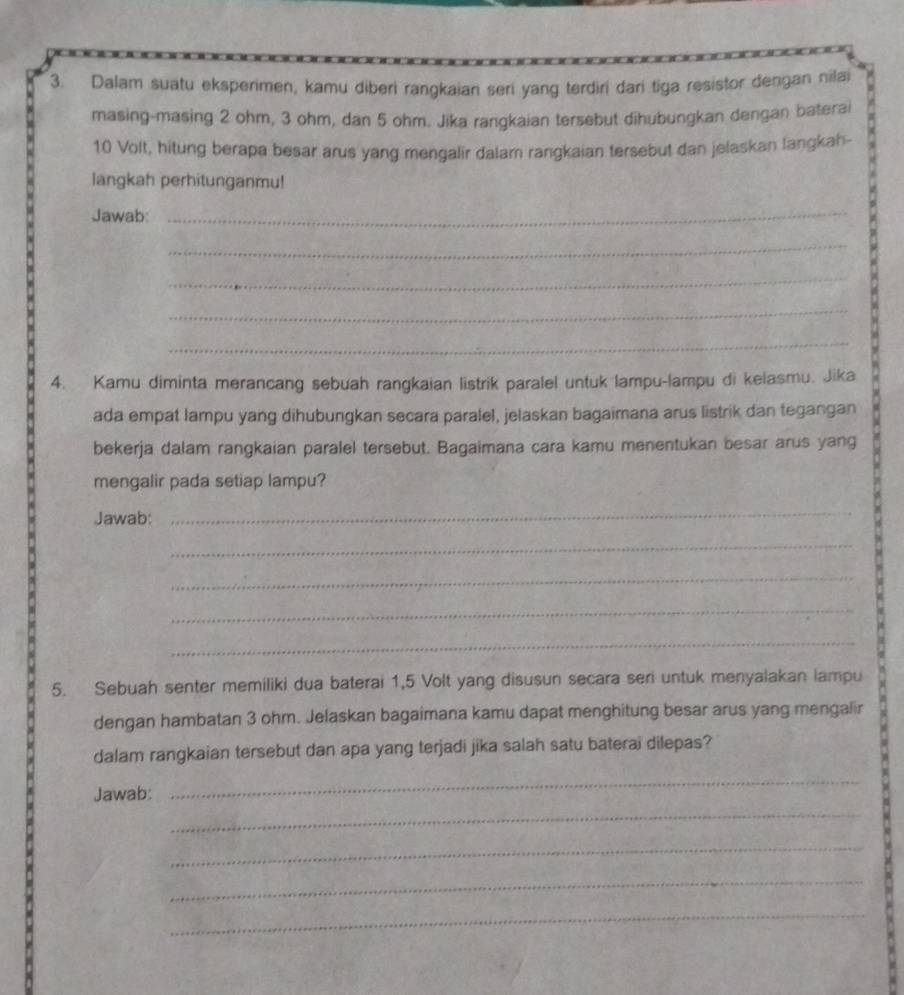 3. Dalam suatu eksperimen, kamu diberi rangkaian seri yang terdiri dari tiga resistor dengan nilai
masing-masing 2 ohm, 3 ohm, dan 5 ohm. Jika rangkaian tersebut dihubungkan dengan baterai
10 Volt, hitung berapa besar arus yang mengalir dalam rangkaian tersebut dan jelaskan langkah-
langkah perhitunganmu!
Jawab:
4. Kamu diminta merancang sebuah rangkaian listrik paralel untuk lampu-lampu di kelasmu. Jika
ada empat lampu yang dihubungkan secara paralel, jelaskan bagaimana arus listrik dan tegangan
bekerja dalam rangkaian paralel tersebut. Bagaimana cara kamu menentukan besar arus yang
mengalir pada setiap lampu?
Jawab:
5. Sebuah senter memiliki dua baterai 1,5 Volt yang disusun secara seri untuk menyalakan lampu
dengan hambatan 3 ohm. Jelaskan bagaimana kamu dapat menghitung besar arus yang mengalir
dalam rangkaian tersebut dan apa yang terjadi jika salah satu baterai dilepas?
Jawab: